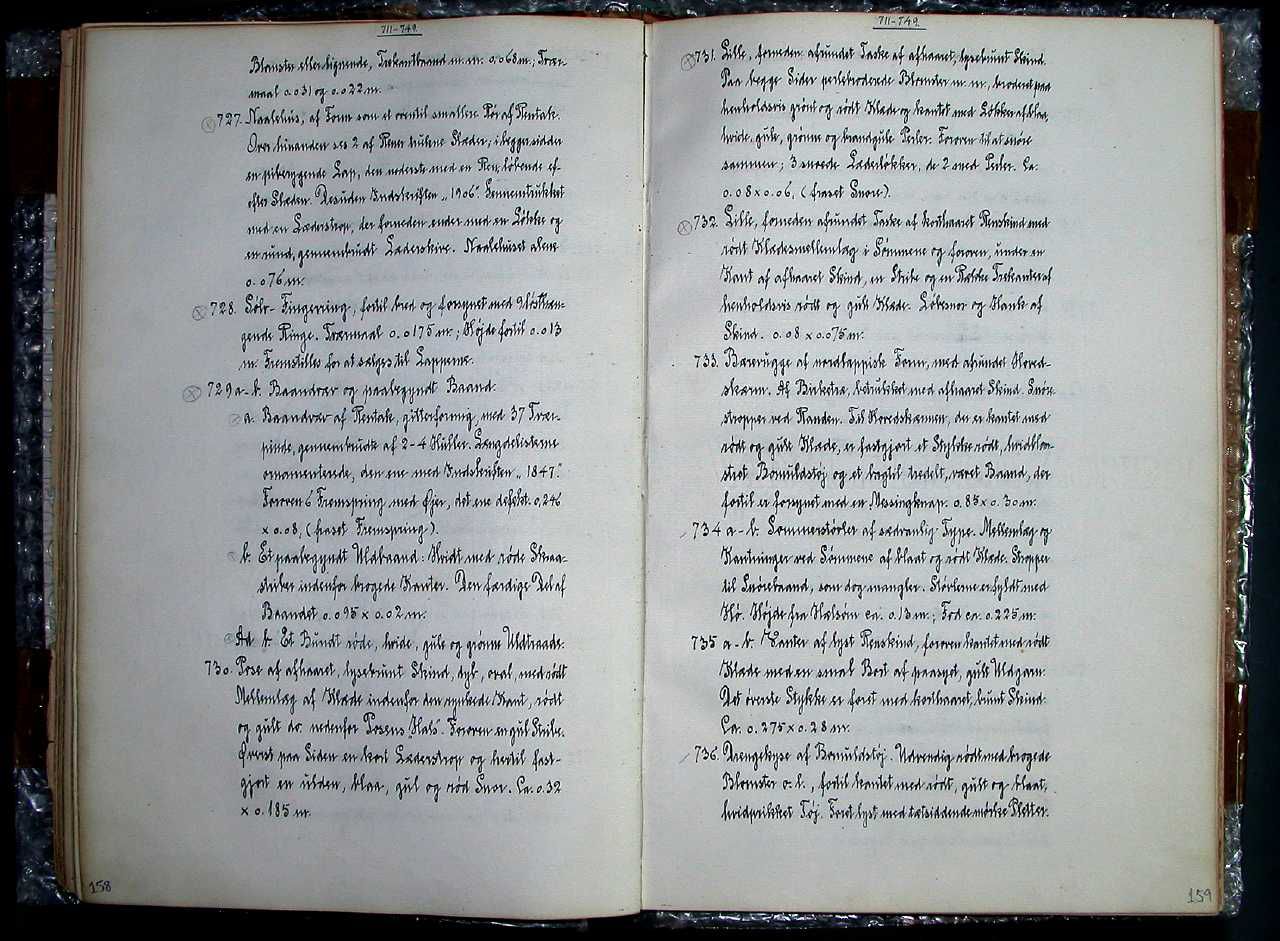 711-749.
Blomster eller lignende, Trekantbaand m.m. 0.068 m.; Tvær-
maal 0.031 og 0.022 m.
727. Naalehus, af Form som et oventil smallere Rør af Rentak.
Over hinanden ses 2 af Rener trukne Slæder; i begge sidder
en pibe­rygende Lap, den nederste med en Ren løbende ef-
efter Slæden. Desuden Indskriften „1906“. Gennemtrukket
med en Læderstrop, der forneden ender med en Løkke og
en rund, gennembrudt Læderskive. Naalehuset alene
0.076 m.
728. Sølv-Fingerring, fortil bred og forsynet med 9 løsthæn-
gende Ringe. Tværmaal 0.0175 m.; Højde fortil 0.013
m. Fremstilles for at sælges til Lapperne.
729 a-b. Baandvæv og paabegyndt Baand.
a. Baandvæv af Rentak, gitterformig, med 37 Tvær-
pinde, gennembrudte af 2-4 Huller. Længdelisterne
ornamenterede, den ene med Indskriften „1847.“
Foroven 6 Fremspring med Øjer, det ene defekt. 0.246
x 0.08, (fraset Fremspring).
b. Et paabegyndt Uldbaand. Hvidt med røde Skraa-
striber indenfor brogede Kanter. Den færdige Del af
Baandet 0.095 x 0.02 m.
Ad b. Et Bundt røde, hvide, gule og grønne Uldtraade.
730. Pose af afhaaret, lysebrunt Skind, dyb, oval, med rødt
Mellemlæg af Klæde indenfor den rynkede Kant, rødt
og gult do. nedenfor Posens „Hals“. Foroven en gul Stribe.
Øverst paa Siden en kort Læderstrop og hertil fast-
gjort en ulden, blaa, gul og rød Snor. Ca. 0.32
x 0.185 m.
158
711-749.
731. Lille, forneden afrundet Taske af afhaaret, lysebrunt Skind.
Paa begge Sider perlebroderede Blomster m.m., broderet paa
henholdsvis grønt og rødt Klæde og kantet med Løkker af blaa,
hvide, gule, grønne og brandgule Perler. Foroven til at snøre
sammen; 3 snoede Læderløkker, de 2 med Perler. Ca.
0.08 x 0.06, (fraset Snore).
732. Lille, forneden afrundet Taske af korthaaret Renskind med
rødt Klædesmellemlæg i Sømmene og foroven, under en
Kant af afhaaret Skind, en Stribe og en Række Trekanter af
henholdsvis rødt og gult Klæde. Løbesnor og Hank af
Skind. 0.08 x 0.075 m.
733. Bærevugge af nordlappiske Form, med afrundet Hoved-
skærm. Af Birketræ, betrukket med afhaaret Skind. Snøre-
stropper ved Randen. Til Hovedskærmen, der er kantet med
rødt og gult Klæde, er fastgjort et Stykke rødt, hvidblom-
stret Bomuldstøj og et bagtil tvedelt, vævet Baand, der
fortil er forsynet med en Messingknap. 0.85 x 0.30 m.
734 a-b. Sommerstøvler af sædvanlig Type. Mellemlæg og
Kantninger ved Sømmene af blaat og rødt Klæde. Stropper
til Snørebaand, som dog mangler. Støvlerne er fyldt med
Hø. Højde fra Hælsøm ca. 0.13 m.; Fod ca. 0.225 m.
735 a-b. Vanter af lyst Renskind, foroven kantet med rødt
Klæde med en smal Bort af paasyet, gult Uldgarn.
Det øverste Stykke er foret med korthaaret, brunt Skind.
Ca. 0.275 x 0.28 m.
736. Drengekyse af Bomuldstøj. Udvendig rødt med brogede
Blomster o.l., fortil kantet med rødt, gult og blaat,
hvidprikket Tøj. Foret lyst med tætsiddende mørke Pletter.
159